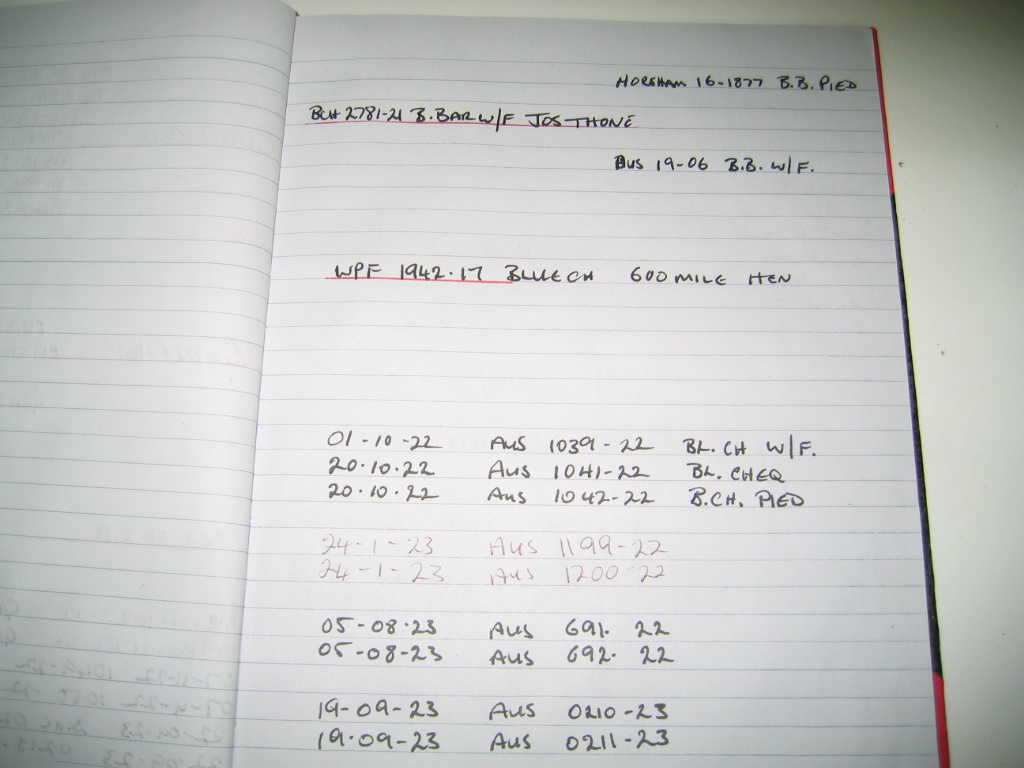 HORSHAM 16-1877 B.B. PIED
BCH 2781-21 B.BAR W/F JOS THONE
AUS 19-06 B.B. W/F.
WPF 1942.17 BLUE CH 600 MILE HEN
01-10-22 AUS 1039-22 BL. CH W/F.
20.10.22 AUS 1041-22 BL. CHEQ
20.10.22 AUS 1042-22 B.CH. PIED
24-1-23 AUS 1199-22
24-1-23 AUS 1200-22
05-08.23 AUS 691. 22
05-08-23 AUS 692. 22
19-09-23 AUS 0210-23
19.09-23 AUS 0211-23